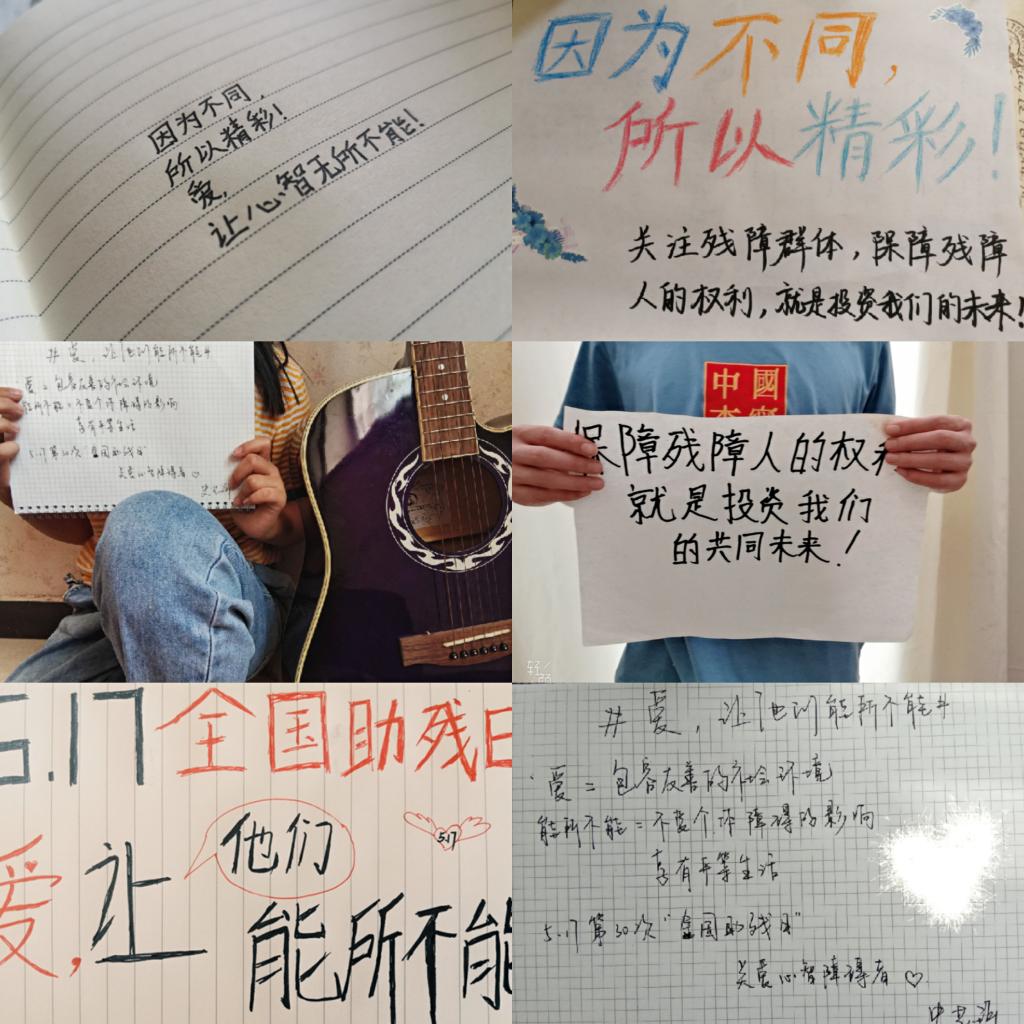 因为不同,
所以精彩!
爱,
让心智无所不能!
因为不同,
所以精彩!
关注残障群体,保障残障
人的权利,就是投资我们的未来!
#爱,让他们能所不能#
爱=包容友善的社会环境
能所不能=不受个体障碍的影响
享有平等生活
5.17第30次“全国助残日”
关爱心智障碍者♡
中國
保障残障人的权利
就是投资我们
的共同未来!
轻颜
5.17全国助残日
他们
5.17
爱,让
能所不能
#爱,让他们能所不能#
爱=包容友善的社会环境
能所不能=不受个体障碍的影响
享有平等生活
5.17第30次“全国助残日”
关爱心智障碍者♡